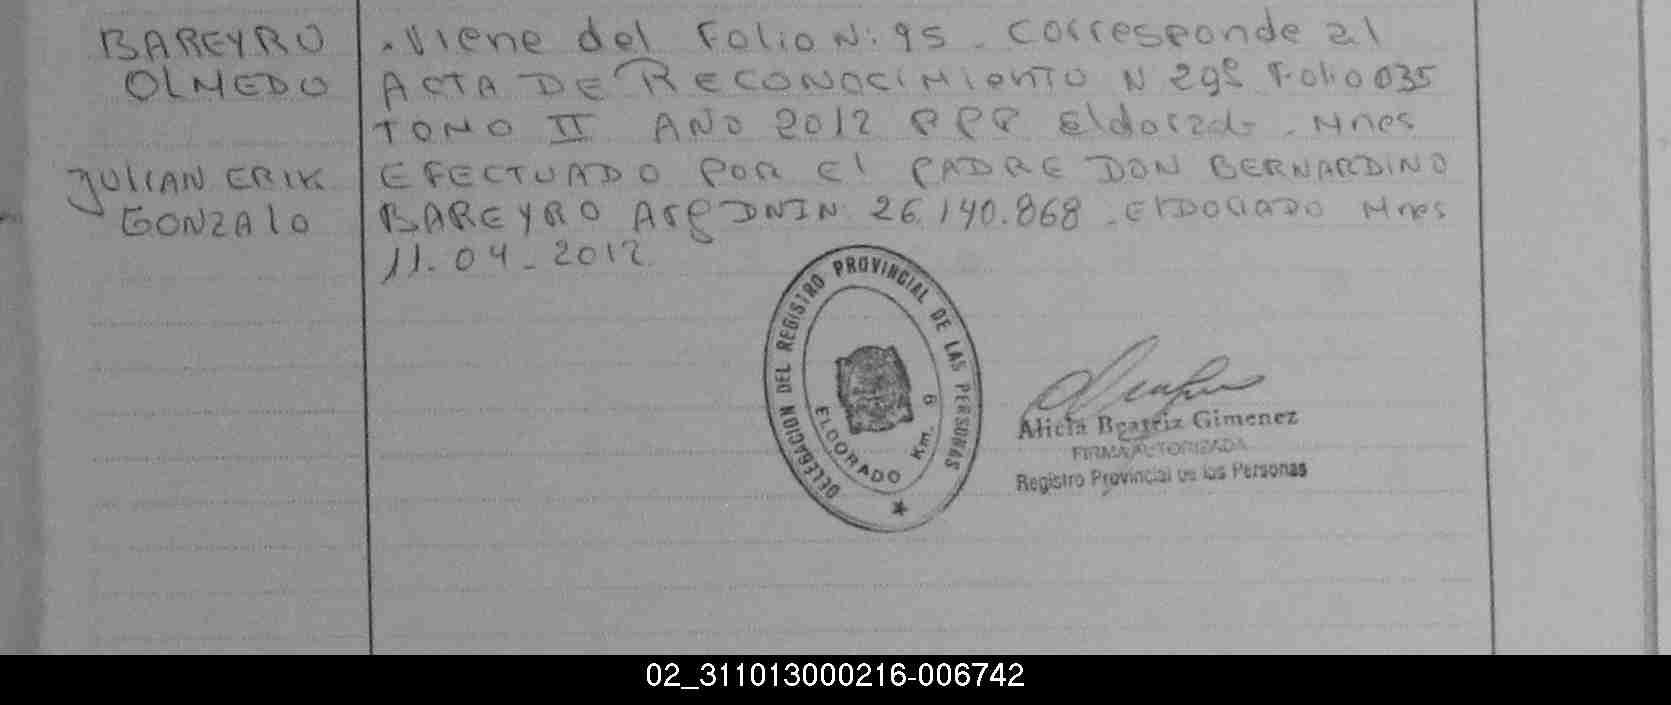 BAREYRO
OLMEDO
JULIAN ERIK
GONZALO
. Viene del Folio N: 95. Corresponde al
ACTA DE RECONOCIMIENTO N 295 Folio 035
TOMO II AÑO 2012 PPP Eldorado. Mnes
EFECTUADO POR El PADRE DON BERNARDINO
BAREYRO Arg DNIN 26.140.868. ElDORADO Mnes
11.04-2012
DELEGACION DEL REGISTRO PROVINCIAL DE LAS PERSONAS
ELDORADO Km. 9
Alicia Beatriz Gimenez
FIRMA AUTORIZADA
Registro Provincial de las Personas
02_311013000216-006742